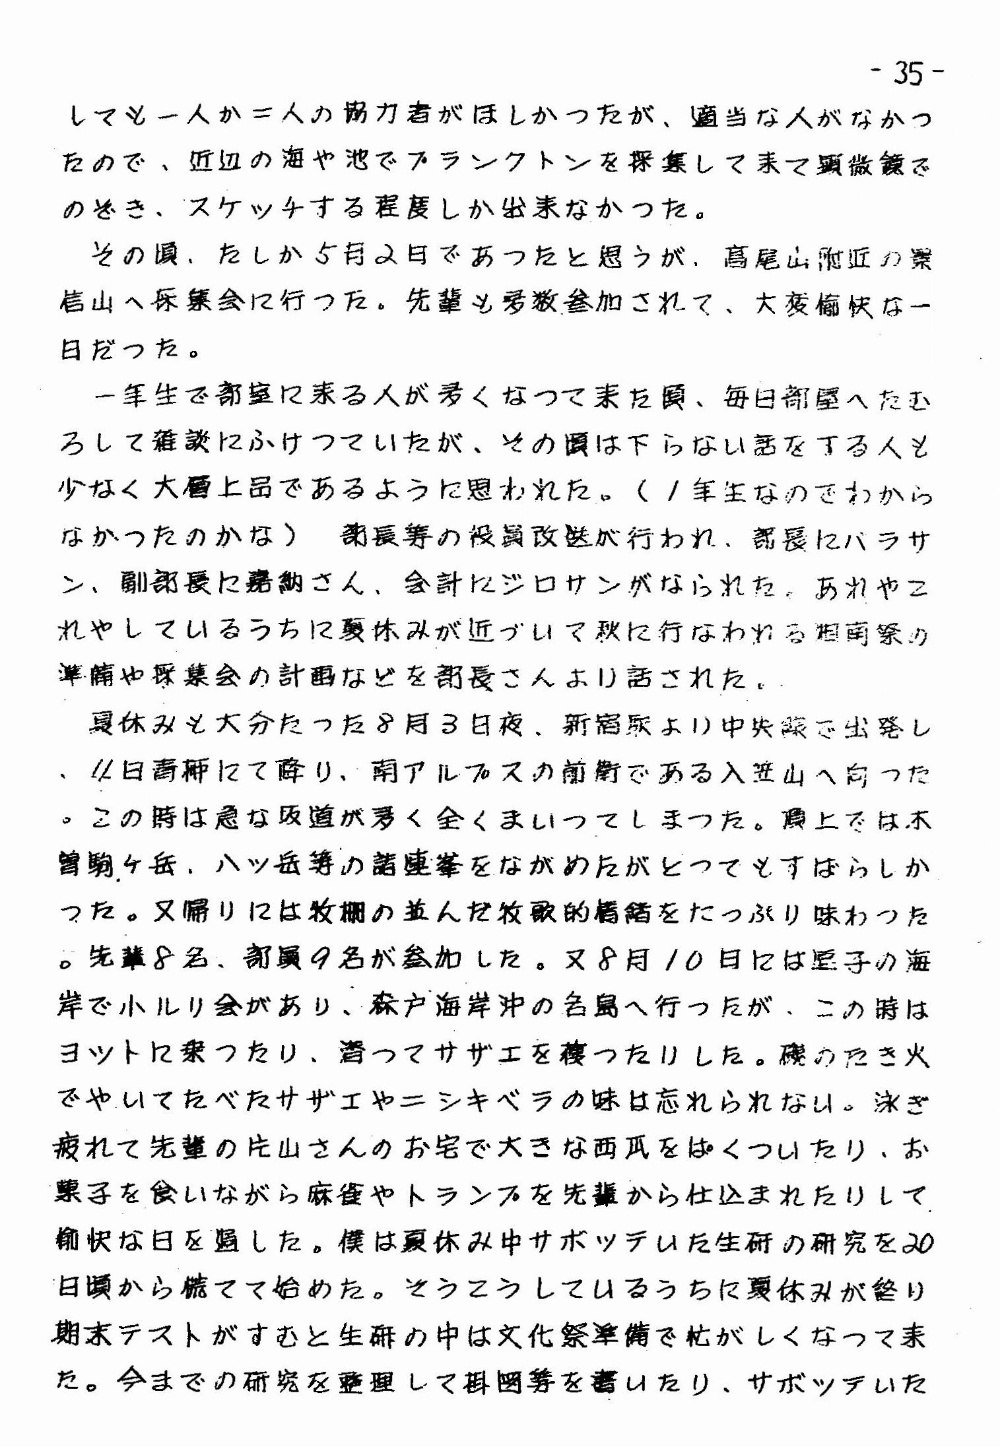 - 35 -
しても一人か二人の協力者がほしかつたが、適当な人がなかつ
たので、近辺の海や池でプランクトンを採集して来て顕微鏡で
のぞき、スケッチする程度しか出来なかつた。
その頃、たしか5月2日であつたと思うが、高尾山附近の景
信山へ採集会に行つた。先輩も多数参加されて、大変愉快な一
日だつた。
一年生で部室に来る人が多くなつて来た頃、毎日部屋へたむ
ろして雑談にふけつていたが、その頃は下らない話をする人も
少なく大層上品であるように思われた。(1年生なのでわから
なかつたのかな) 部長等の役員改選が行われ、部長にバラサ
ン、副部長に嘉納さん、会計にジロサンがなられた。あれやこ
れやしているうちに夏休みが近づいて秋に行なわれる湘南祭の
準備や採集会の計画などを部長さんより話された。
夏休みも大分たつた8月3日夜、新宿駅より中央線で出発し
、4日青柳にて降り、南アルプスの前衛である入笠山へ向つた
。この時は急な坂道が多く全くまいつてしまつた。頂上では木
曽駒ヶ岳、八ッ岳等の諸連峯をながめたがとつてもすばらしか
つた。又帰りには牧柵の並んだ牧歌的情緒をたっぷり味わつた
。先輩8名、部員9名が参加した。又8月10日には逗子の海
岸で小ルリ会があり、森戸海岸沖の名島へ行つたが、この時は
ヨットに乗つたり、潜つてサザエを穫つたりした。磯のたき火
でやいてたべたサザエやニシキベラの味は忘れられない。泳ぎ
疲れて先輩の片山さんのお宅で大きな西瓜をぱくついたり、お
菓子を食いながら麻雀やトランプを先輩から仕込まれたりして
愉快な日を過した。僕は夏休み中サボッテいた生研の研究を20
日頃から慌てて始めた。そうこうしているうちに夏休みが終り
期末テストがすむと生研の中は文化祭準備で忙がしくなつて来
た。今までの研究を整理して掛図等を書いたり、サボッテいた